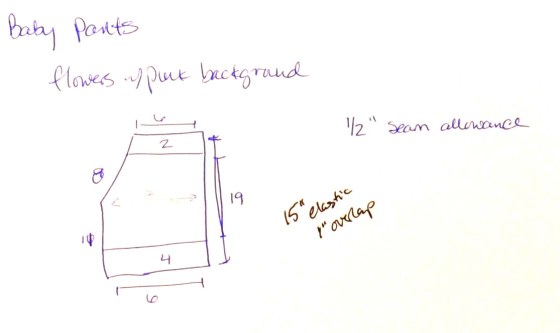 Baby Pants
flowers w/ pink background
6
1/2" seam allowance
2
8
19
15" elastic
1" overlap
4
6